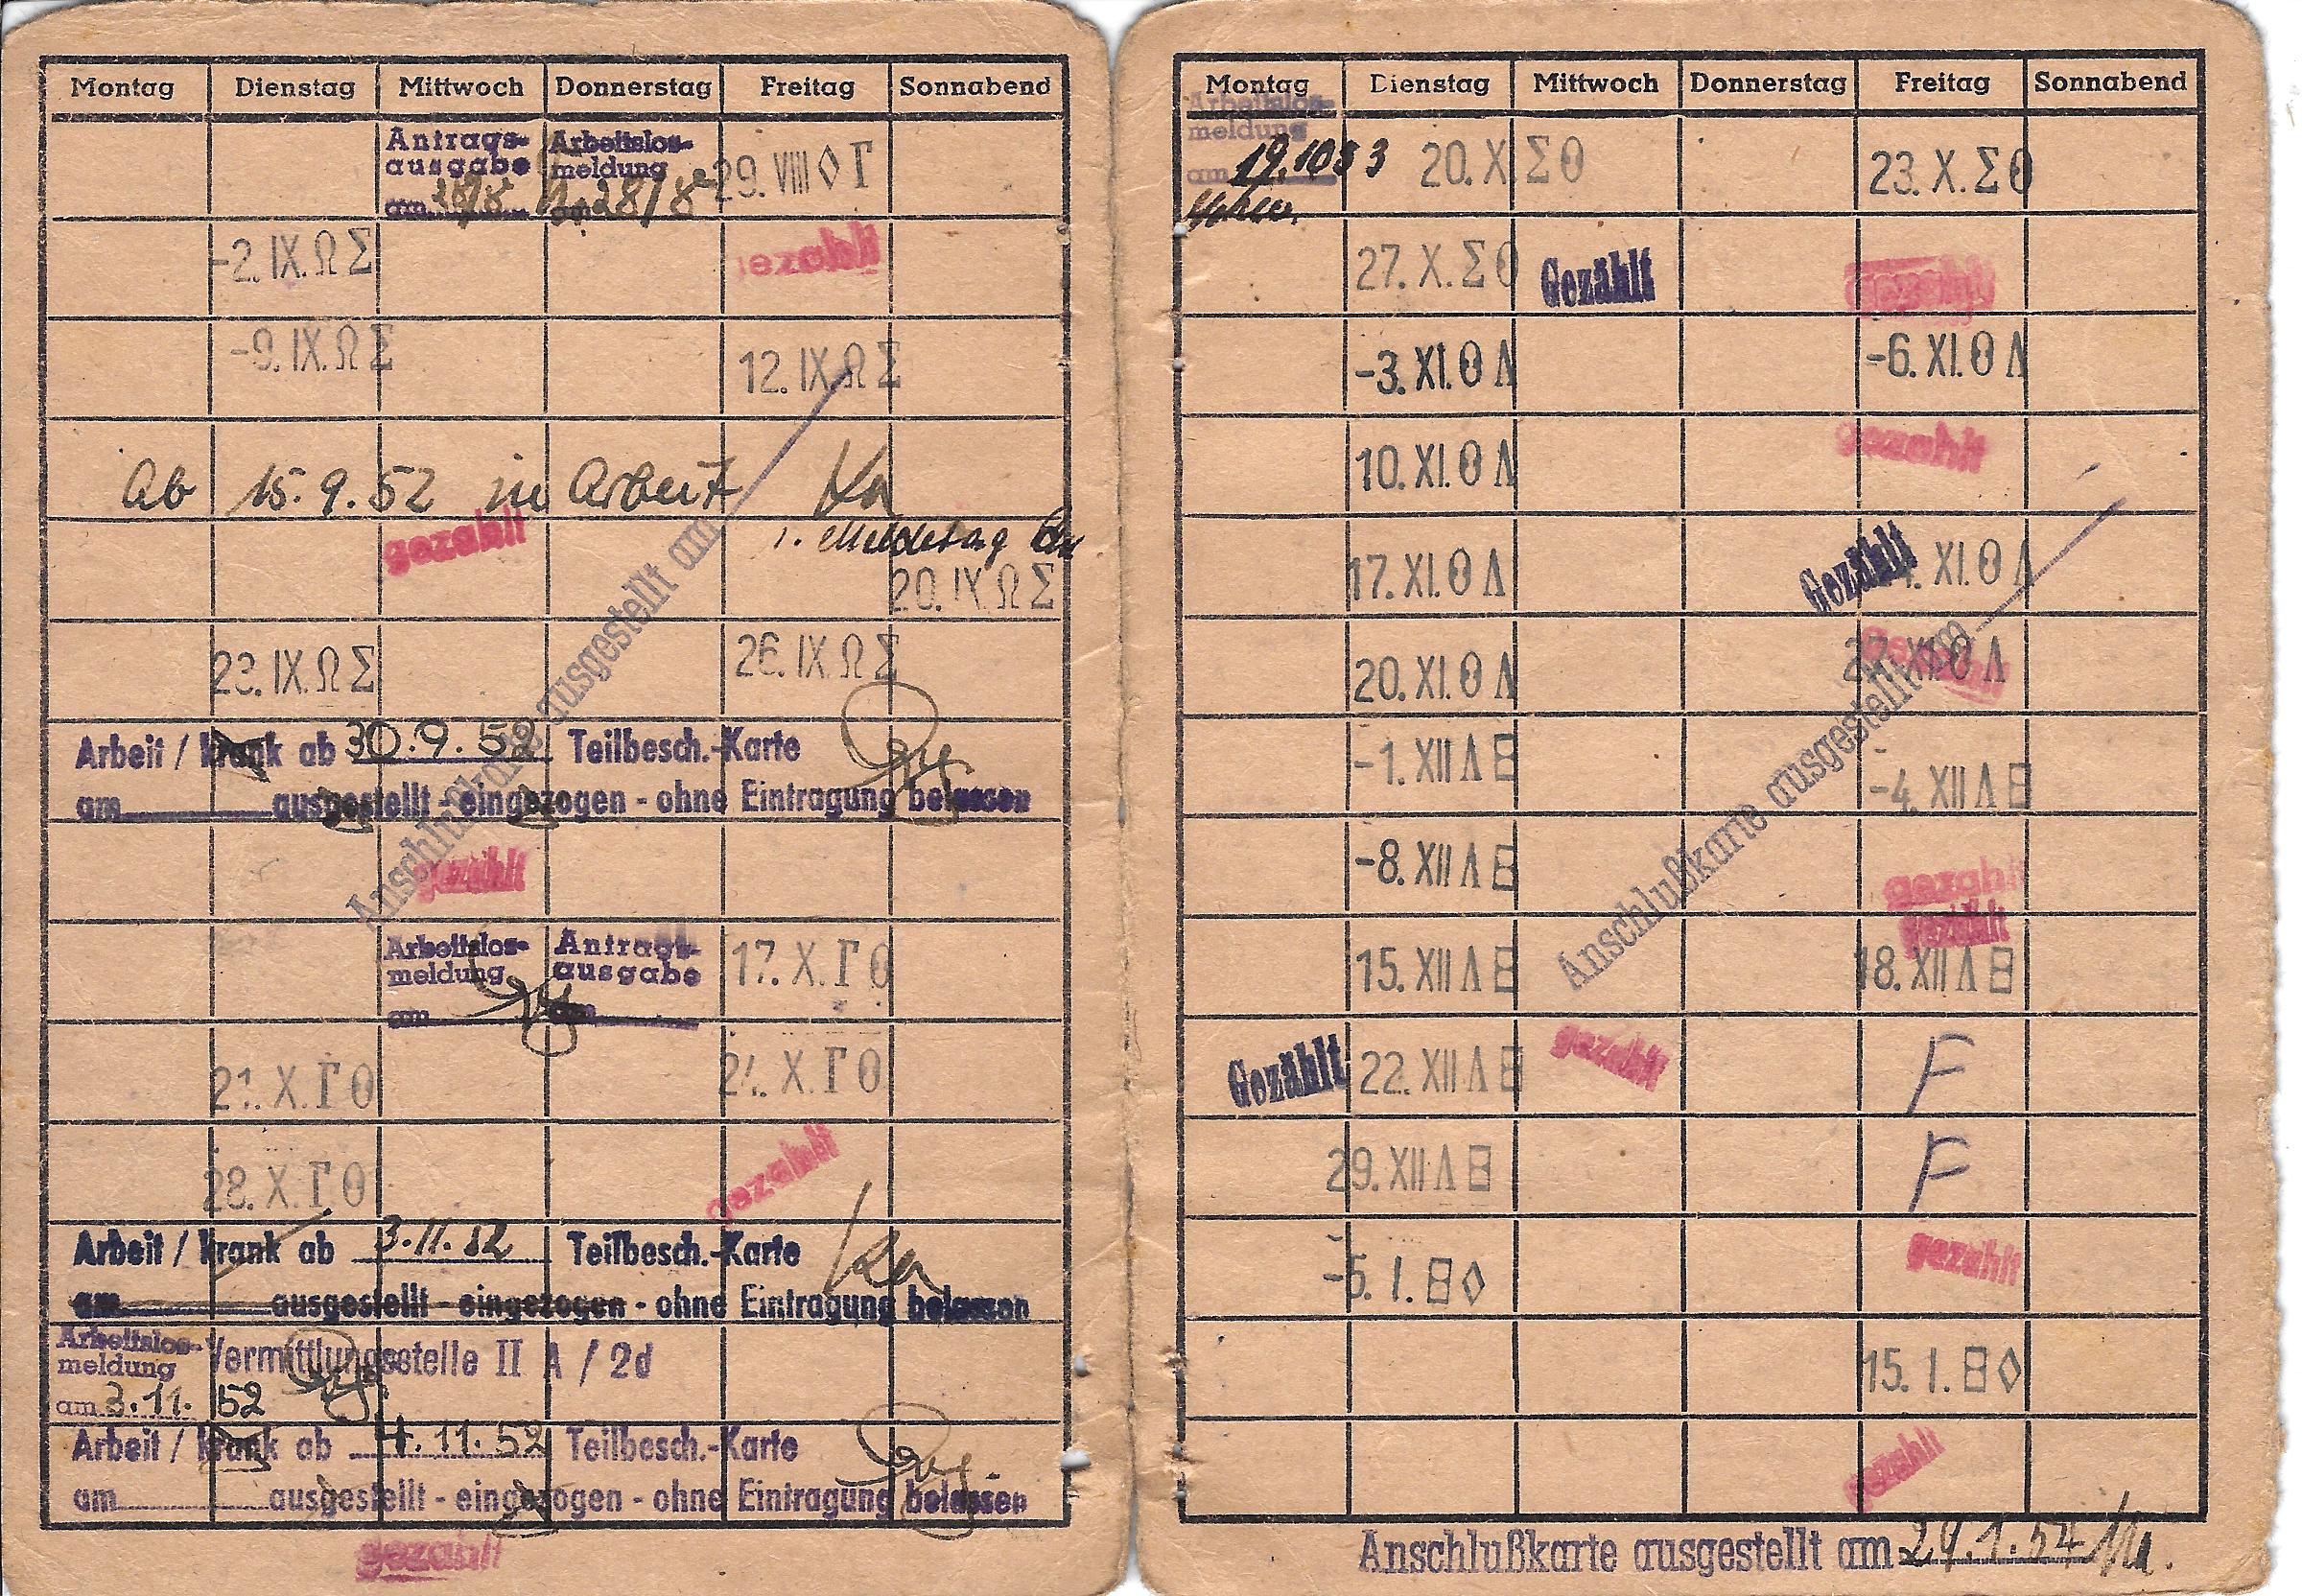 Montag Dienstag Mittwoch Donnerstag Freitag Sonnabend
Antrags-
ausgabe
am 28/8
Arbeitslos-
meldung
am 28/8
29. VIII ◊ Γ
-2. IX. Ω Σ
gezahlt
-9. IX. Ω Σ 12. IX. Ω Σ
Ab 15.9.52 in Arbeit Ka
gezahlt 1. Meldetag
20. IX. Ω Σ
23. IX. Ω Σ 26. IX. Ω Σ
Arbeit / krank ab 30.9.52 Teilbesch.-Karte
am ausgestellt - eingezogen - ohne Eintragung belassen
gezahlt
Anschlußkarte ausgestellt am
Arbeitslos-
meldung
am
Antrags-
ausgabe
am
17. X. Γ Θ
21. X. Γ Θ 24. X. Γ Θ
28. X. Γ Θ gezahlt
Arbeit / krank ab 3.11.52 Teilbesch.-Karte Ka
am ausgestellt - eingezogen - ohne Eintragung belassen
Arbeitslos-
meldung
am 3.11.52
Vermittlungsstelle II A / 2d
Arbeit / krank ab 4.11.52 Teilbesch.-Karte
am ausgestellt - eingezogen - ohne Eintragung belassen
gezahlt
Montag Dienstag Mittwoch Donnerstag Freitag Sonnabend
Arbeitslos-
meldung
am 19.10.53
20. X. Σ Θ 23. X. Σ Θ
27. X. Σ Θ Gezählt gezahlt
-3. XI. Θ Λ -6. XI. Θ Λ
10. XI. Θ Λ gezahlt
17. XI. Θ Λ Gezählt XI. Θ Λ
20. XI. Θ Λ 27. XI. Θ Λ gezahlt
-1. XII Λ 日 -4. XII Λ 日
-8. XII Λ 日 gezahlt
gezahlt
15. XII Λ 日 18. XII Λ 日
Anschlußkarte ausgestellt am
Gezählt 22. XII Λ 日 gezahlt F
29. XII Λ 日 F
-5. 1. 日 ◊ gezahlt
15. 1. 日 ◊
gezahlt
Anschlußkarte ausgestellt am 29.1.54